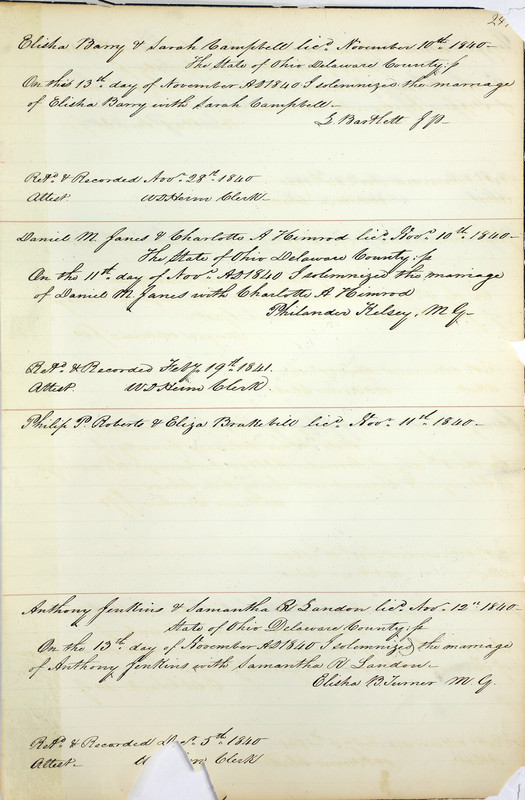 24
Elisha Barry & Sarah Campbell licd November 10th 1840—
The State of Ohio Delaware County. ss
On this 13th day of November AD 1840 I solemnized the marriage
of Elisha Barry with Sarah Campbell—
Bartlett J P—
Retd & Recorded Novr 28th 1840
Attest W D Heim Clerk—
Daniel M. Janes & Charlotte A Himrod licd Novr 10th 1840—
The State of Ohio Delaware County. ss
On the 11th day of Novr AD 1840 I solemnized the marriage
of Daniel M. Janes with Charlotte A Himrod
Philander Kelsey, M G—
Retd & Recorded Feby 19th 1841.
Attest. W D Heim Clerk.
Philip P. Roberts & Eliza licd Novr 11th 1840—
Anthony Jenkins & Samantha R Landon licd Nov. 12th 1840—
State of Ohio Delaware County. ss
On the 13th day of November AD 1840 I solemnized the marriage
of Anthony Jenkins with Samantha R Landon—
Elisha B. Turner M G.
Retd & Recorded 5th 1840
Attest— Clerk